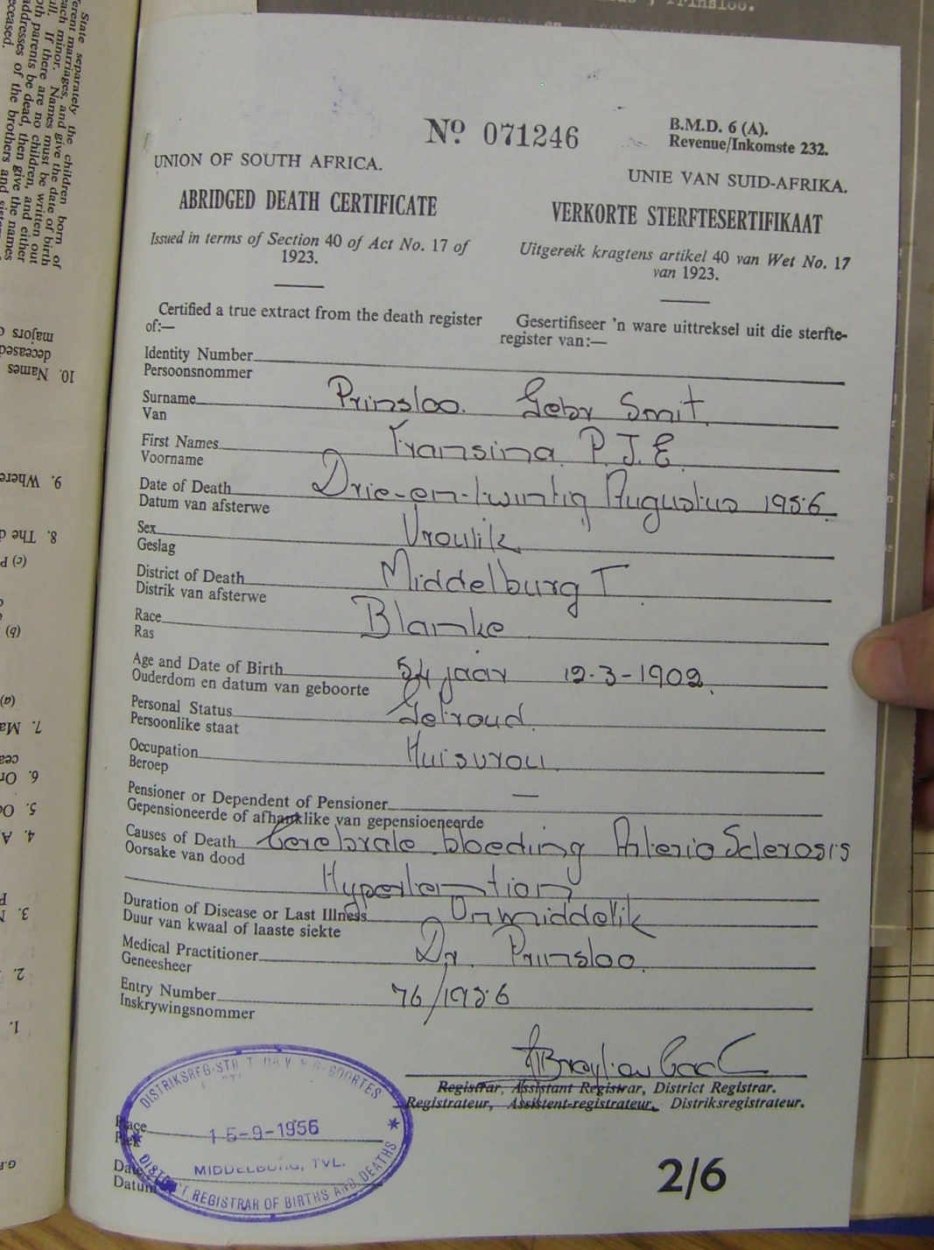 Nº 071246
B.M.D. 6 (A).
Revenue/Inkomste 232.
UNION OF SOUTH AFRICA.
UNIE VAN SUID-AFRIKA.
ABRIDGED DEATH CERTIFICATE
VERKORTE STERFTESERTIFIKAAT
Issued in terms of Section 40 of Act No. 17 of
1923.
Uitgereik kragtens artikel 40 van Wet No. 17
van 1923.
Certified a true extract from the death register
of:—
Gesertifiseer 'n ware uittreksel uit die sterfte-
register van:—
Identity Number
Persoonsnommer
Surname Prinsloo Gebr Smit
Van
First Names Fransina P.J.E.
Voorname
Date of Death Drie-en-twintig Augustus 1956
Datum van afsterwe
Sex Vroulik
Geslag
District of Death Middelburg T
Distrik van afsterwe
Race Blanke
Ras
Age and Date of Birth 54 jaar 12-3-1902
Ouderdom en datum van geboorte
Personal Status Getroud
Persoonlike staat
Occupation Huisvrou
Beroep
Pensioner or Dependent of Pensioner —
Gepensioneerde of afhanklike van gepensioeneerde
Causes of Death Cerebrale bloeding Arterio Sclerosis
Oorsake van dood
Hypertention
Duration of Disease or Last Illness Onmiddelik
Duur van kwaal of laaste siekte
Medical Practitioner Dr. Prinsloo
Geneesheer
Entry Number 76/1956
Inskrywingsnommer
Registrar, Assistant Registrar, District Registrar.
Registrateur, Assistent-registrateur, Distriksregistrateur.
Place
15-9-1956
MIDDELBURG, TVL.
Datum
DISTRICT REGISTRAR OF BIRTHS AND DEATHS
2/6
State separately the children born of
each minor. Names must be written out
If there are no children, and either
both parents be dead, then give the names
addresses of the brothers and
10. Names
deceased
majors
9. Where
8. The d
7. Ma
6. Or
5. Oc
4. A
3.
2.
1.